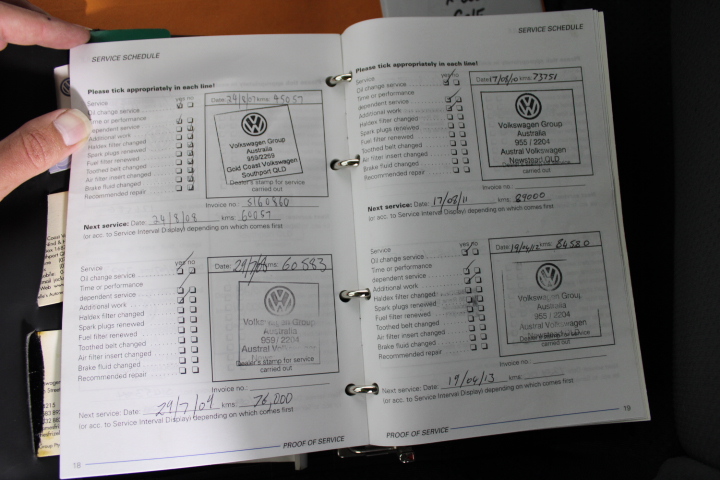 SERVICE SCHEDULE
Please tick appropriately in each line!
yes no
Service
Oil change service
Time or performance
dependent service
Additional work
Haldex filter changed
Spark plugs renewed
Fuel filter renewed
Toothed belt changed
Air filter insert changed
Brake fluid changed
Recommended repair
Date: 24/8/07 kms: 45057
Volkswagen Group
Australia
959/2259
Gold Coast Volkswagen
Southport QLD
Dealer's stamp for service
carried out
Invoice no.: 5160860
Next service: Date: 24/8/08 kms: 60057
(or acc. to Service Interval Display) depending on which comes first
Service yes no
Oil change service
Time or performance
dependent service
Additional work
Haldex filter changed
Spark plugs renewed
Fuel filter renewed
Toothed belt changed
Air filter insert changed
Brake fluid changed
Recommended repair
Date: 29/7/08 kms: 60583
Volkswagen Group
Australia
959 / 2204
Austral Volkswagen
Dealer's stamp for service
carried out
Invoice no.:
Next service: Date: 29/7/09 kms: 76,000
(or acc. to Service Interval Display) depending on which comes first
18
PROOF OF SERVICE
SERVICE SCHEDULE
Please tick appropriately in each line!
yes no
Service
Oil change service
Time or performance
dependent service
Additional work
Haldex filter changed
Spark plugs renewed
Fuel filter renewed
Toothed belt changed
Air filter insert changed
Brake fluid changed
Recommended repair
Date: 17/08/10 kms: 73751
Volkswagen Group
Australia
955 / 2204
Austral Volkswagen
Newstead QLD
Dealer's stamp for service
carried out
Invoice no.:
Next service: Date: 17/08/11 kms: 89000
(or acc. to Service Interval Display) depending on which comes first
Service yes no
Oil change service
Time or performance
dependent service
Additional work
Haldex filter changed
Spark plugs renewed
Fuel filter renewed
Toothed belt changed
Air filter insert changed
Brake fluid changed
Recommended repair
Date: 19/04/12 kms: 84580
Volkswagen Group
Australia
955 / 2204
Austral Volkswagen
Dealer's stamp for service
carried out
Invoice no.:
Next service: Date: 19/04/13 kms:
(or acc. to Service Interval Display) depending on which comes first
PROOF OF SERVICE
19